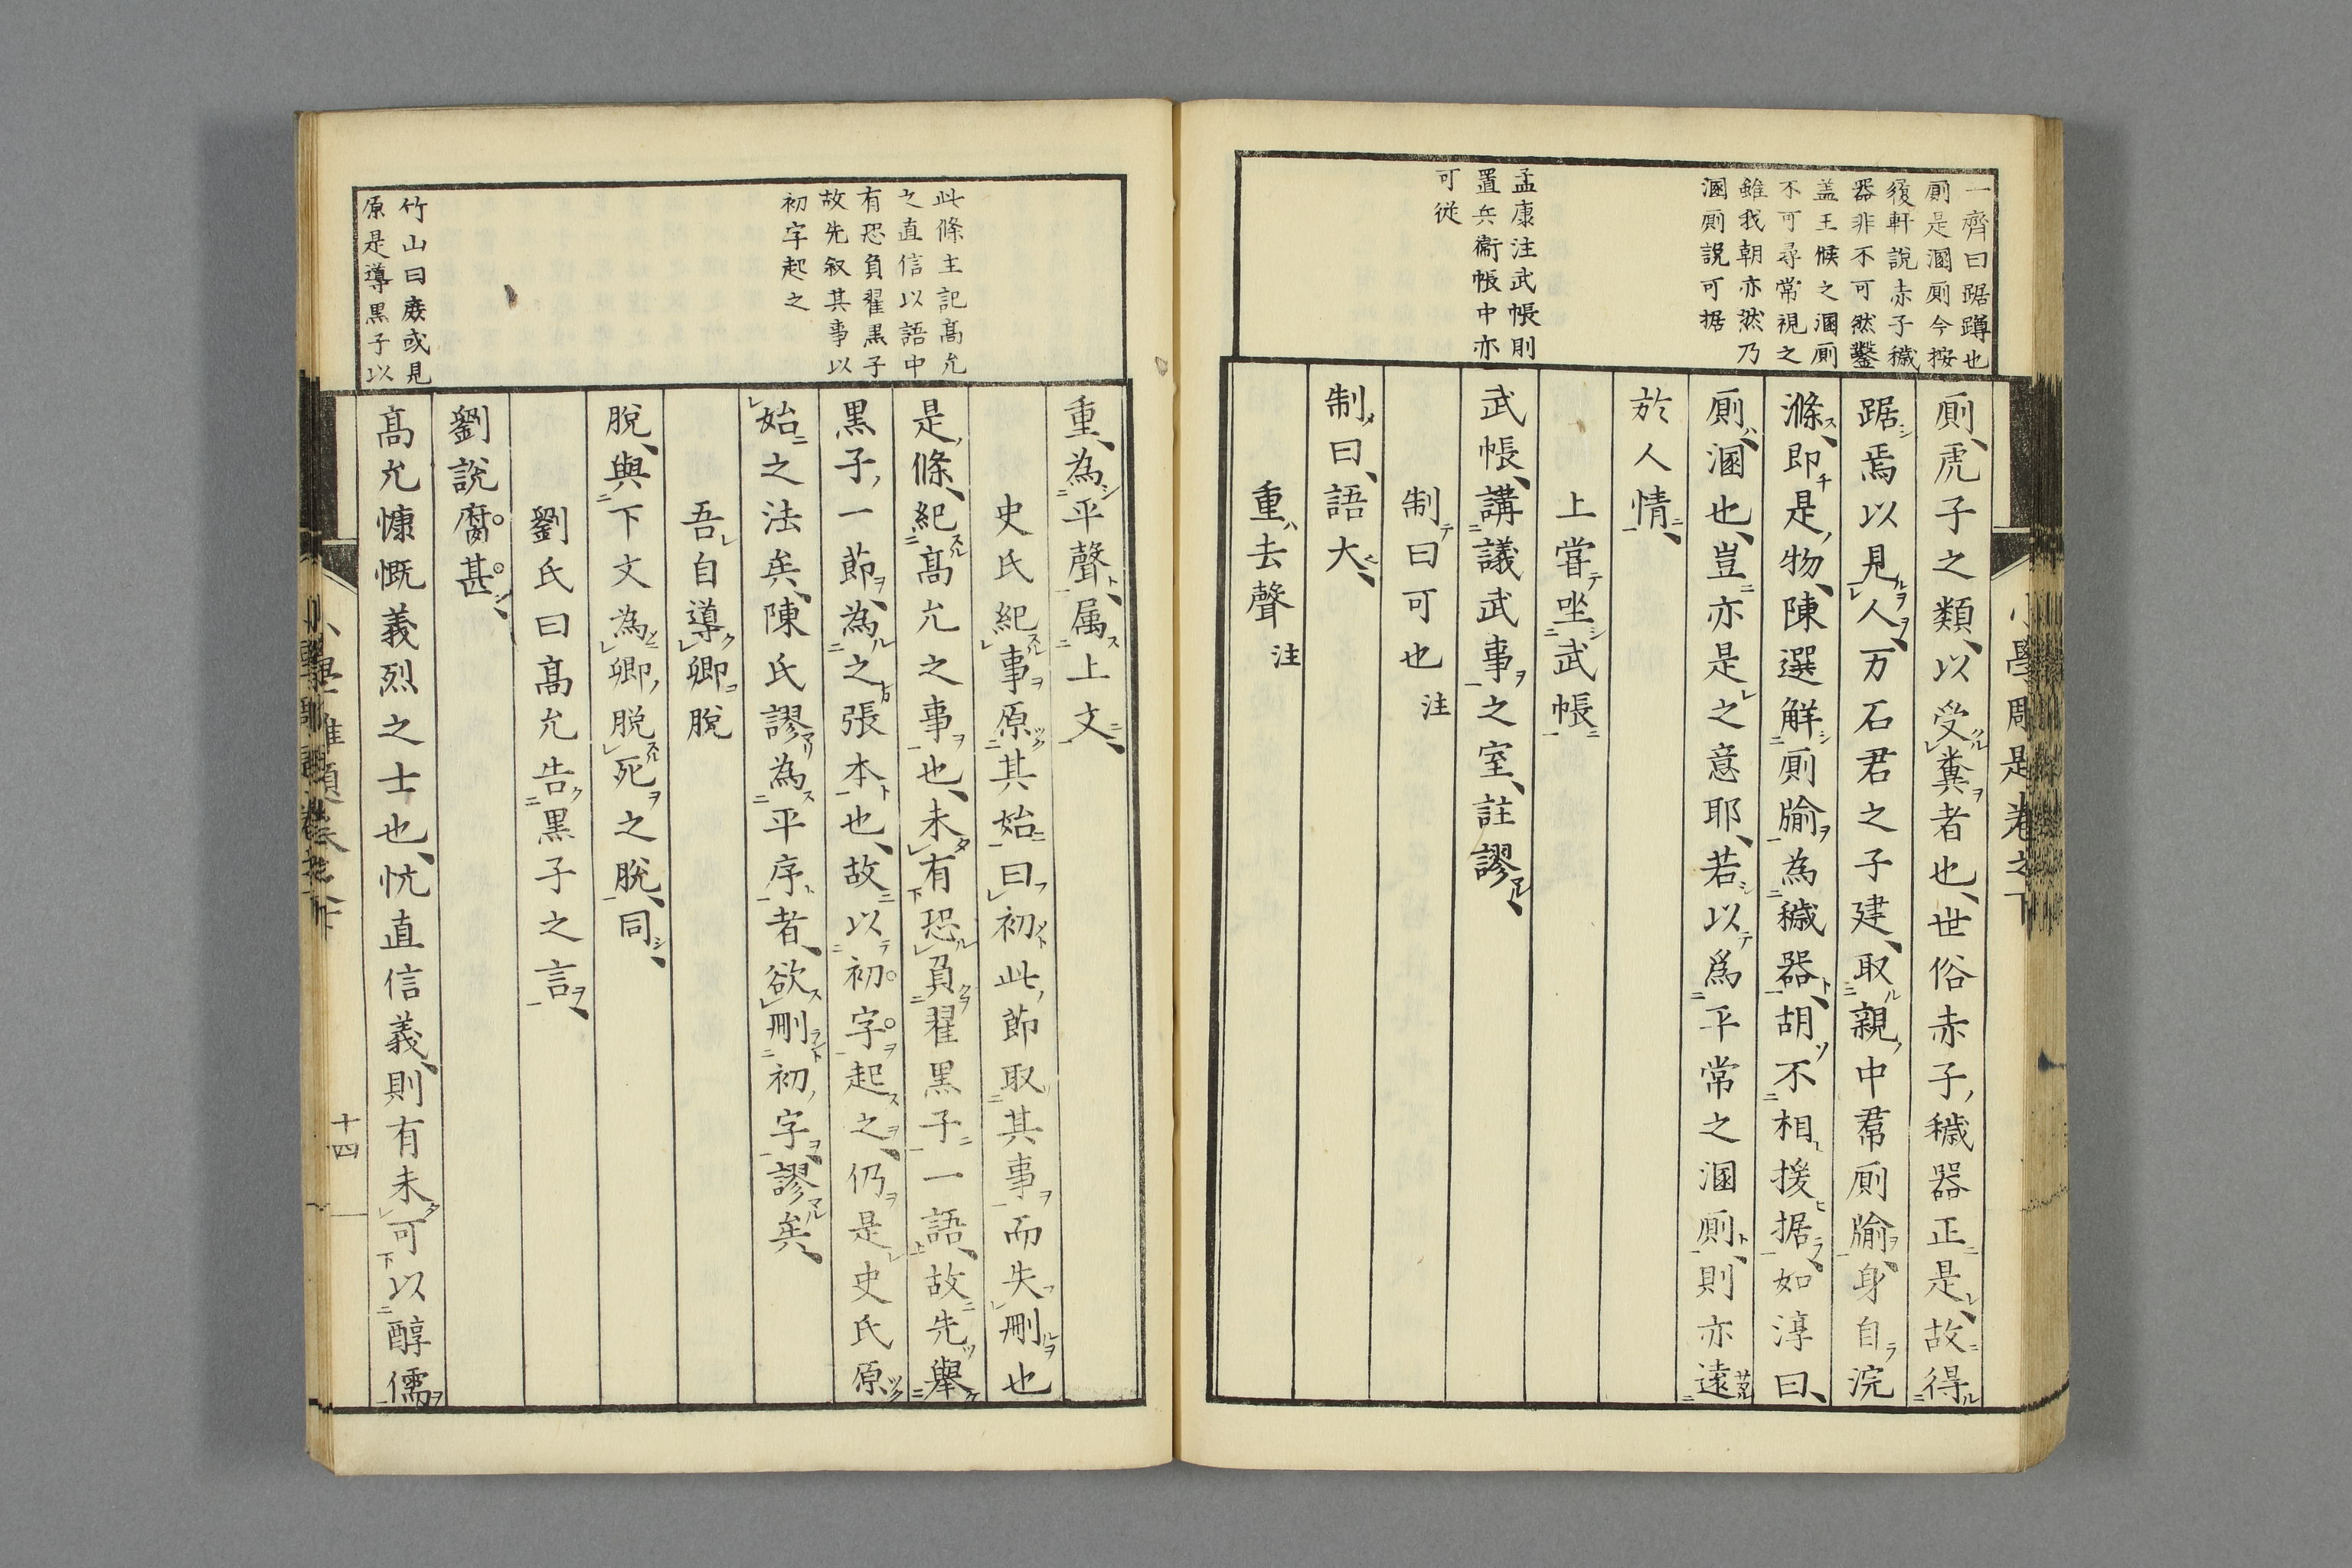 一齊曰踞蹲也
厠是溷厠今按
後軒說赤子穢
器非不可然鑿
盖王候之溷厠
不可尋常視之
雖我朝亦然乃
溷厠說可据
孟康注武帳則
置兵衞帳中亦
可従
厠、虎子之類、以受糞者也、世俗赤子穢器正是、故得
踞焉以見人、万石君之子建、取親中帬厠牏、身自浣
滌、即是物、陳選解厠牏為穢器、胡不相援据、如淳曰、
厠溷也、豈亦是之意耶、若以爲平常之溷厠、則亦遠
於人情、
上甞坐武帳
武帳、講議武事之室、註謬、
制曰可也 注
制曰、語大、
重去聲 注
此條主記髙允
之直信以語中
有恐負翟黒子
故先叙其事以
初字起之
竹山曰庾或見
原是導黒子以
重、為平聲、属上文、
史氏紀事原其始曰初此節取其事而失刪也
是條、紀髙允之事也、未有恐負翟黒子一語、故先舉
黒子一節、為之張本也、故以初字起之、仍是史氏原
始之法矣、陳氏謬為平序者、欲刪初字、謬矣、
吾自導卿脫
脫、與下文為卿脱死之脫、同、
劉氏曰髙允告黒子之言、
劉說腐甚、
髙允慷慨義烈之士也、忼直信義、則有未可以醇儒
十四